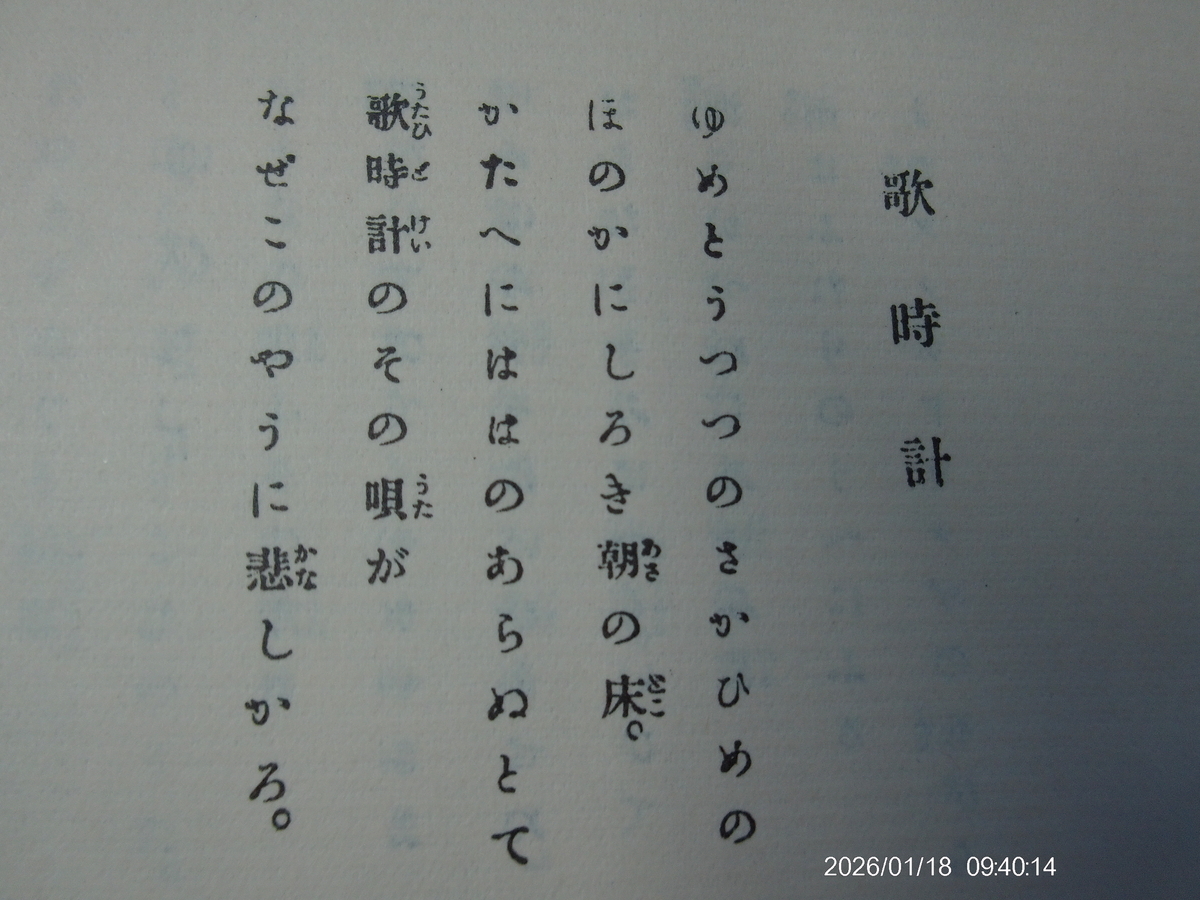 歌時計
ゆめとうつつのさかひめの
ほのかにしろき朝の床。
かたへにははのあらぬとて
歌時計のその唄が
なぜこのやうに悲しかろ。
あさ
どこ
うたひ
ど
けい
うた
かな
2026/01/18 09:40:14